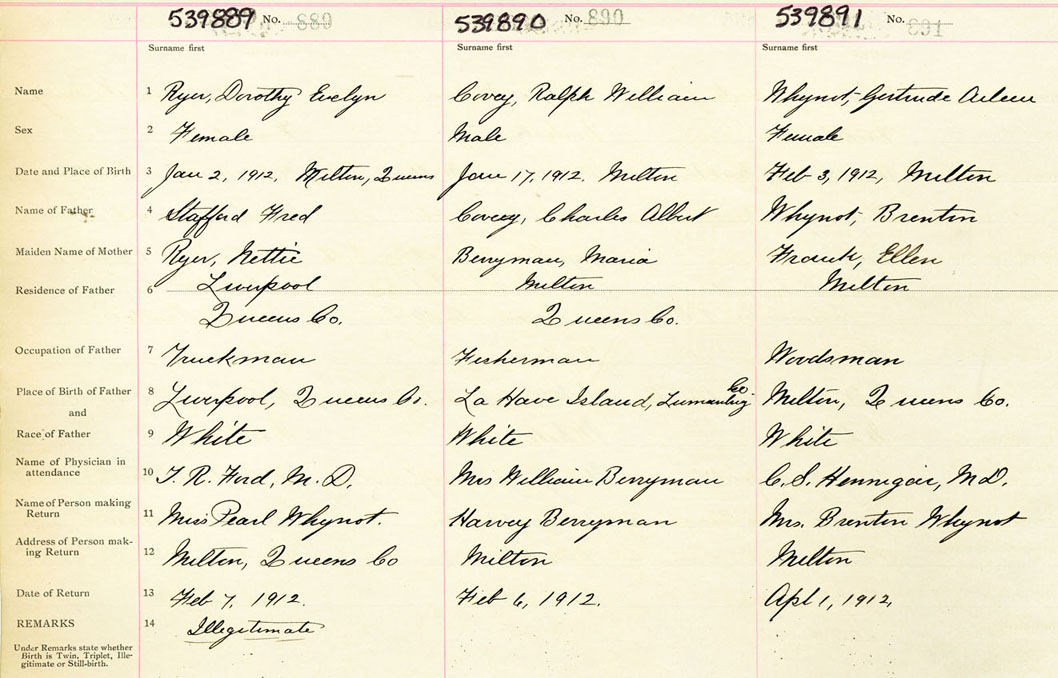 539889 No. 889 539890 No. 890 539891 No. 891
Surname first Surname first Surname first
Name 1 Ryer, Dorothy Evelyn Covey, Ralph William Whynot, Gertrude Aileen
Sex 2 Female Male Female
Date and Place of Birth 3 Jan 2, 1912, Milton, Queens Jan 17, 1912. Milton Feb 3, 1912, Milton
Name of Father 4 Stafford Fred Covey, Charles Albert Whynot, Brenton
Maiden Name of Mother 5 Ryer, Nettie Berryman, Maria Frank, Ellen
Residence of Father 6 Liverpool Milton Milton
Queens Co. Queens Co.
Occupation of Father 7 Truckman Fisherman Woodsman
Place of Birth of Father 8 Liverpool, Queens Co. La Have Island, Lunenburg Co Milton, Queens Co.
and
Race of Father 9 White White White
Name of Physician in
attendance 10 T. R. Ford, M. D. Mrs William Berryman C. S. Hennigar, M.D.
Name of Person making
Return 11 Miss Pearl Whynot. Harvey Berryman Mrs. Brenton Whynot
Address of Person mak-
ing Return 12 Milton, Queens Co Milton Milton
Date of Return 13 Feb 7, 1912. Feb 6, 1912. Apl 1, 1912,
REMARKS 14 Illegitimate
Under Remarks state whether
Birth is Twin, Triplet, Ille-
gitimate or Still-birth.